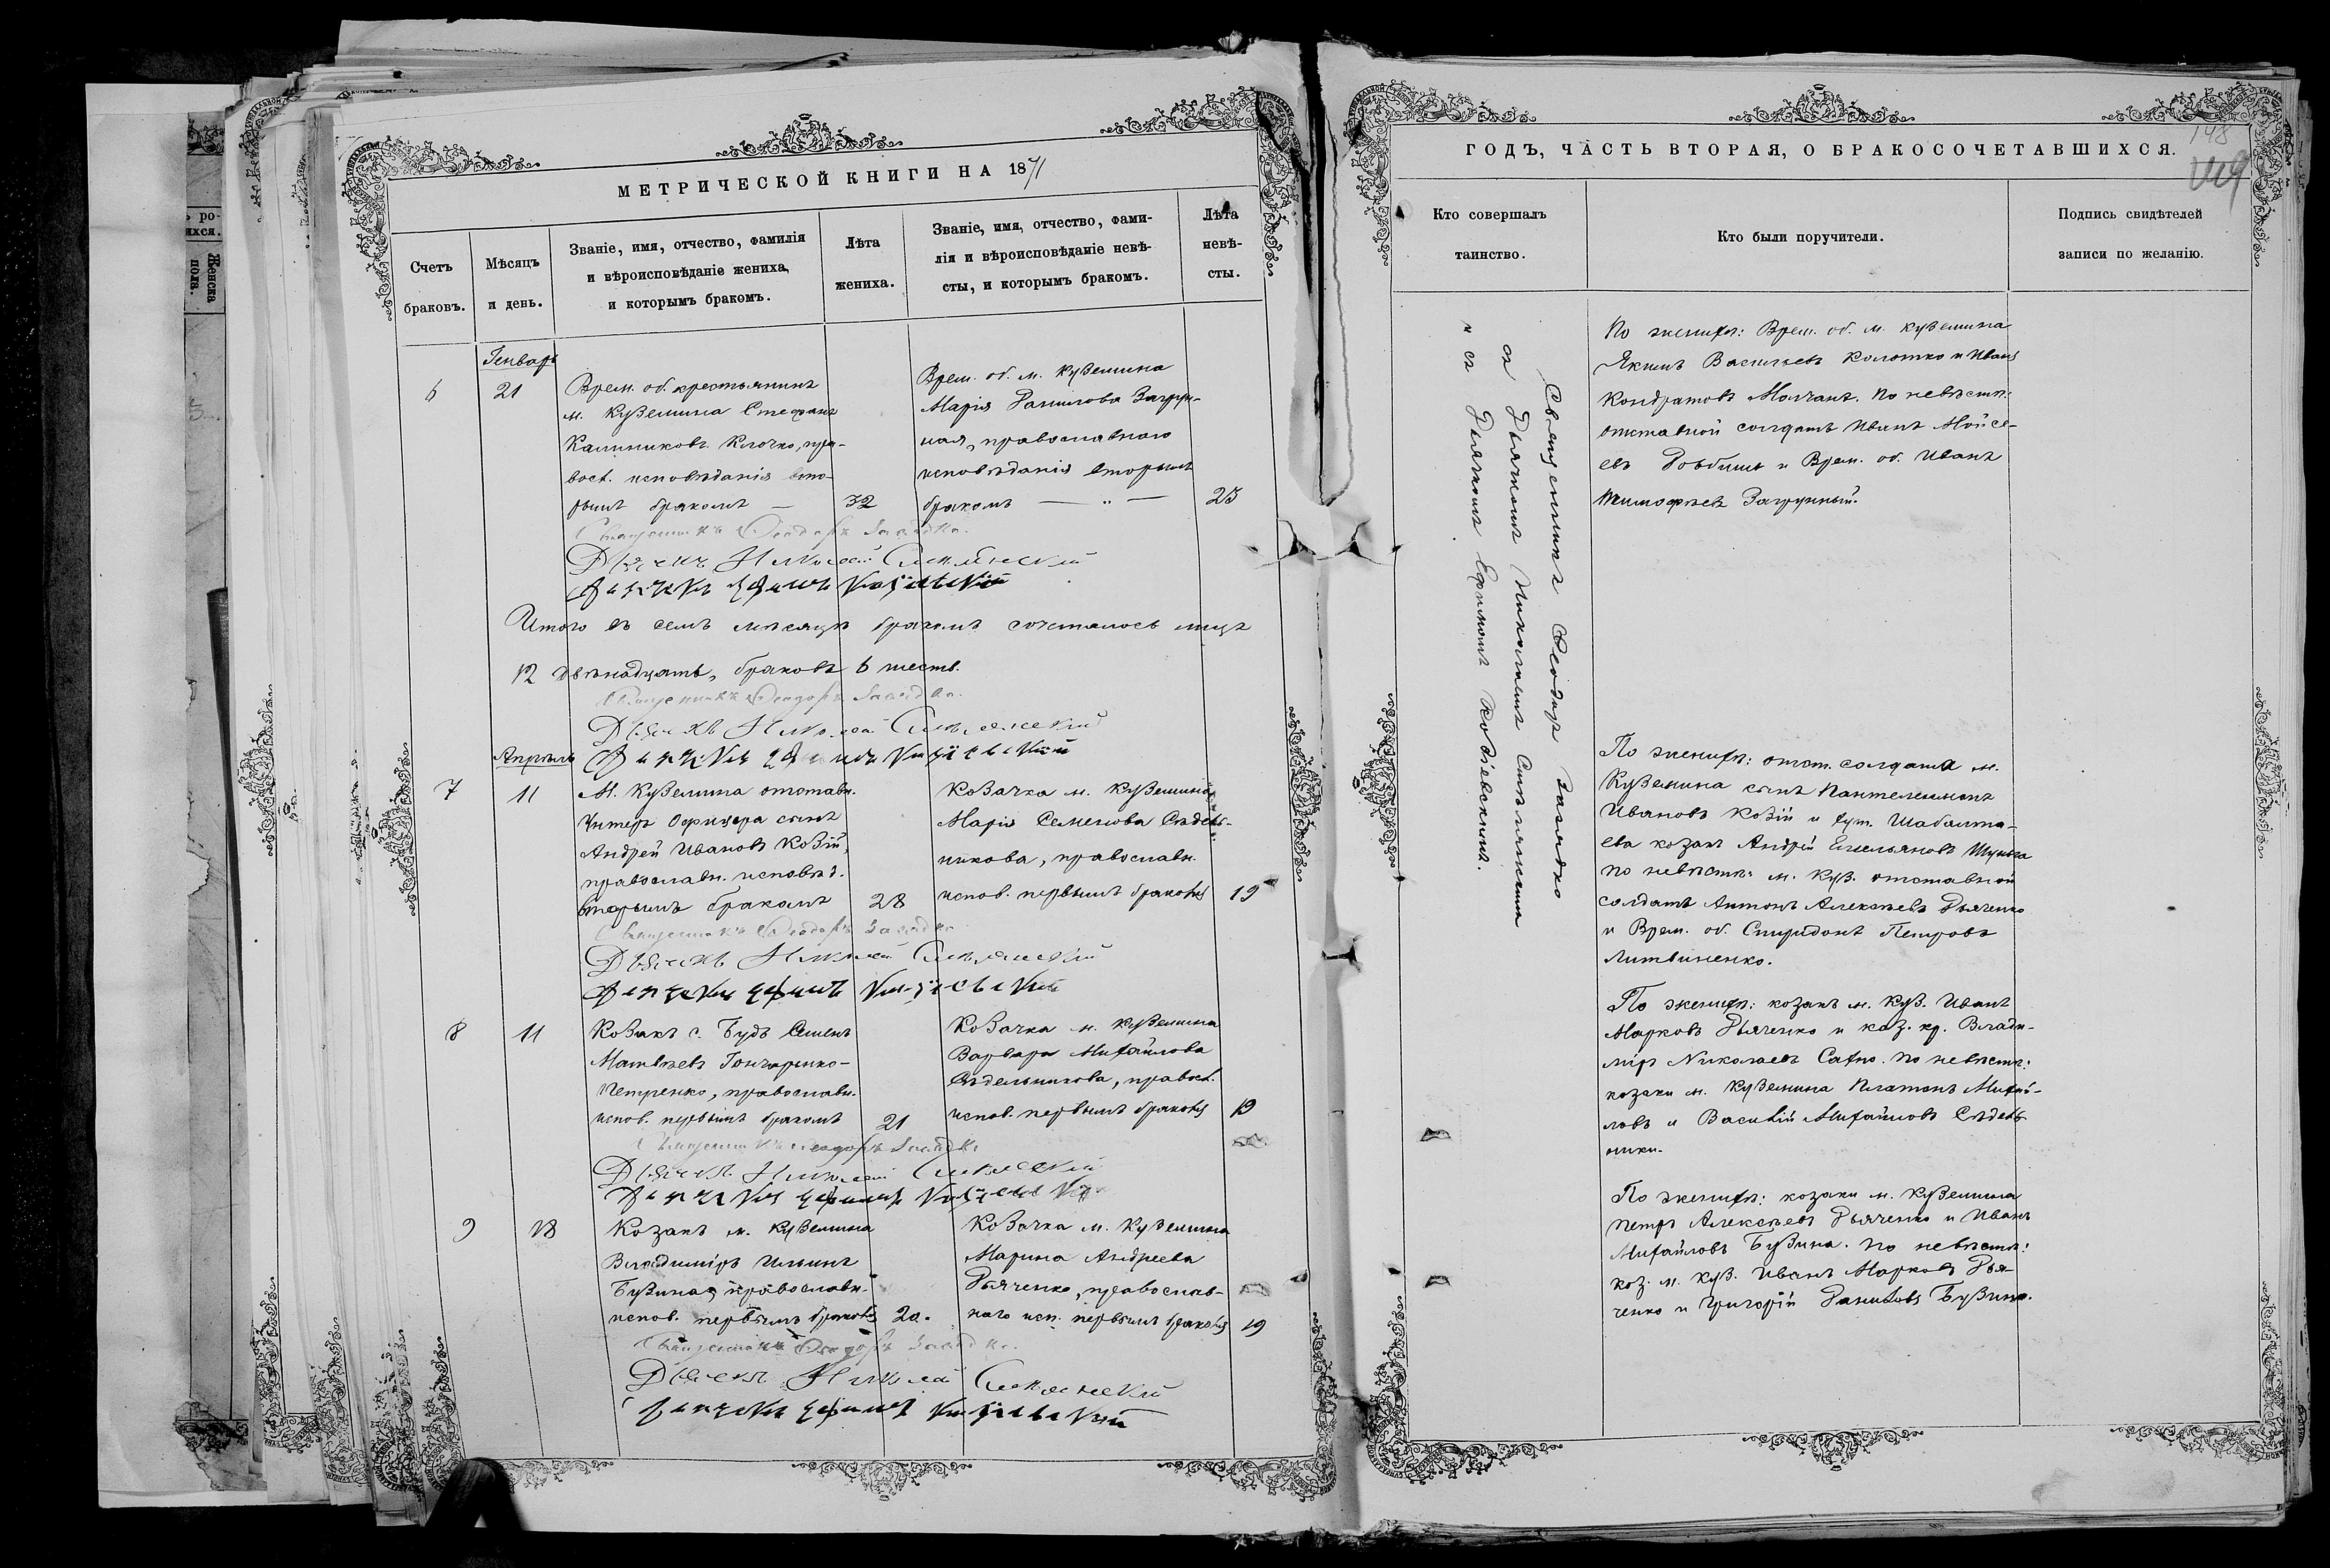 МЕТРИЧЕСКОЙ КНИГИ НА 1871
Счетъ
браковъ.
Мѣсяцъ
и день.
Званіе, имя, отчество, фамилія
и вѣроисповѣданіе жениха,
и которымъ бракомъ.
Лѣта
жениха.
Званіе, имя, отчество, фами-
лія и вѣроисповѣданіе невѣ-
сты, и которымъ бракомъ.
Лѣта
невѣ-
сты.
Генварь
6
21
Врем. об. крестьянинъ
м. Куземина Стефанъ
Калиниковъ Клочко, пра-
восл. исповѣданія вто-
рымъ бракомъ
32
Врем. об. м. Куземина
Марія Данилова Загруи-
ная, православнаго
исповѣданія вторымъ
бракомъ
23
Священникъ Ѳеодоръ
Дьячекъ Николай
Итого въ семъ мѣсяцѣ бракомъ сочеталось лицъ
12 двѣнадцать, браковъ 6 шесть.
Священникъ Ѳеодоръ
Дьячекъ Николай
Апрѣль
7
11
М. Куземина отставн.
Унтеръ Офицера сынъ
Андрей Ивановъ Козій,
православн. исповѣд.
вторымъ бракомъ
28
Козачка м. Куземина
Марія Семенова Сѣдель-
никова, православн.
испов. первымъ бракомъ
19
Священникъ Ѳеодоръ
Дьячекъ Николай
8
11
Козакъ с. Будъ Семенъ
Матвѣевъ Гончаренко-
Петренко, православн.
испов. первымъ бракомъ
21
Козачка м. Куземина
Варвара Михайлова
Сѣдельникова, правосл.
испов. первымъ бракомъ
19
Священникъ Ѳеодоръ
Дьячекъ Николай
9
18
Козакъ м. Куземина
Владиміръ Ильинъ
Бузина, православн.
испов. первымъ бракомъ
20.
Козачка м. Куземина
Марина Андреева
Дьяченко, православ-
наго исп. первымъ бракомъ
19
Священникъ Ѳеодоръ
Дьячекъ Николай
ГОДЪ, ЧАСТЬ ВТОРАЯ, О БРАКОСОЧЕТАВШИХСЯ.
148
Кто совершалъ
таинство.
Кто были поручители.
Подпись свидѣтелей
записи по желанію.
Священникъ Ѳеодоръ
съ Дьячкомъ Николаемъ
и съ Дьячкомъ Ефимомъ Козіевскимъ.
По женихѣ: Врем. об. м. Куземина
Якимъ Васильевъ Колотко и Иванъ
Кондратовъ Молчанъ. По невѣстѣ:
отставной солдатъ Иванъ Мойсе-
евъ Довбишъ и Врем. об. Иванъ
Тимофѣевъ
По женихѣ: отст. солдата м.
Куземина сынъ Пантелеимонъ
Ивановъ Козій и
ева козакъ Андрій Емельяновъ
по невѣстѣ: м. Куз. отставной
солдатъ Антонъ Алексѣевъ Дьяченко
и Врем. об. Спиридонъ Петровъ
Литвиненко.
По женихѣ: козакъ м. Куз. Иванъ
Марковъ Дьяченко и каз. кр. Влади-
міръ Николаевъ Сахно. По невѣстѣ:
козаки м. Куземина Платонъ Михай-
ловъ и Василій Михайловъ Сѣдель-
ники.
По женихѣ: козаки м. Куземина
Петръ Алексѣевъ Дьяченко и Иванъ
Михайловъ Бузина. По невѣстѣ:
коз. м. Куз. Иванъ Марковъ Дья-
ченко и Григорій Даниловъ Бузина.